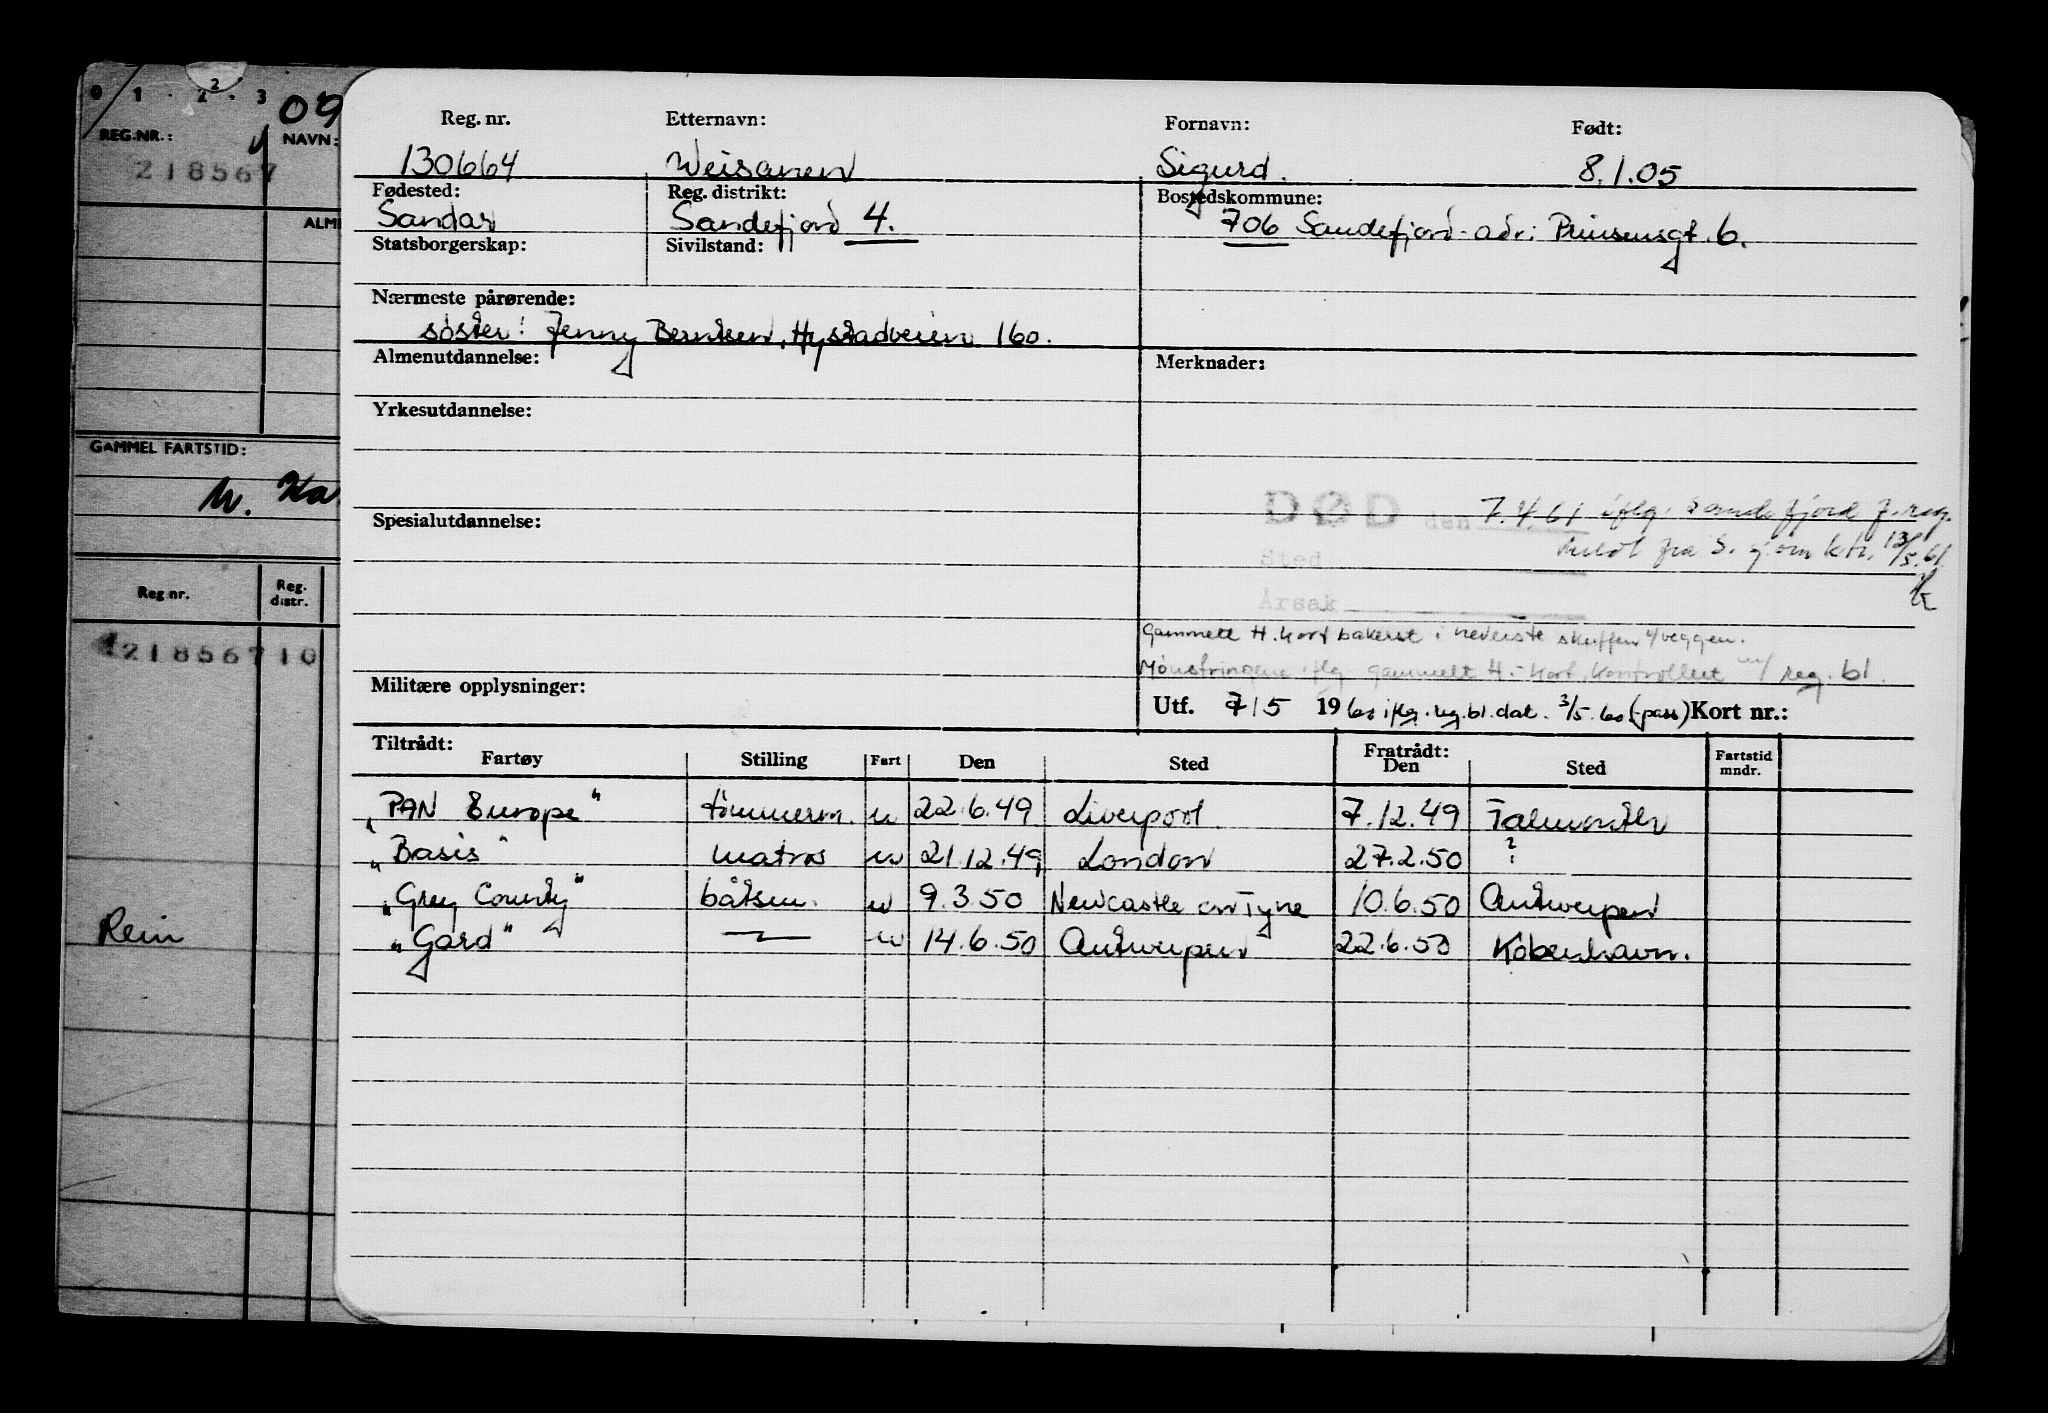 0 1 . 2 . 3
2
09
REG.NR.:
NAVN:
218567
ALM
GAMMEL FARTSTID:
Reg nr.
Reg. distr.
218567 10
Rein
Reg. nr.
Etternavn:
Fornavn:
Født:
130664
Weisanen
Sigurd.
8.1.05
Fødested:
Reg. distrikt:
Bostedskommune:
Sandar
Sandefjord 4.
706 Sandefjord - adr: Prinsensgt. 6.
Statsborgerskap:
Sivilstand:
Nærmeste pårørende:
søster: Jenny Berntsen, Hystadveien 160.
Almenutdannelse:
Merknader:
Yrkesutdannelse:
DØD den 7.4.61 iflg. Sandefjord f.reg.
Spesialutdannelse:
meldt fra S. sjøm ktr. 13/5.61
Sted
Årsak
Gammelt H.kort bakerst i nederste skuffen v/veggen.
Mønstringene iflg gammelt H.-kort, kontrollert m/ reg. bl.
Militære opplysninger:
Utf. 7/5 1960 iflg. reg.bl. dat. 3/5.60 (pass) Kort nr.:
Tiltrådt:
Fratrådt:
Fartøy
Stilling
Fart
Den
Sted
Den
Sted
Fartstid mndr.
"PAN Europe" tømmerm. u 22.6.49 Liverpool. 7.12.49 Falmouth
"Basis" matros u 21.12.49 London 27.2.50 ?
"Grey County" båtsm. u 9.3.50 Newcastle on Tyne 10.6.50 Antwerpen
"Gard" — u 14.6.50 Antwerpen 22.6.50 København.